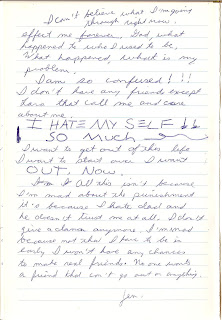 I can't believe what I'm going
through right now.
effect me forever. God, what
happened to who I used to be,
What happened, what is my
problem.
I am so confused!!!
I don't have any friends except
that call me and care
about me.
I HATE MY SELF!!
SO Much
I want to get out of this life
I want to start over I want
OUT. NOW.
It All this isn't because
I'm mad about the punishment.
it's because I hate dad and
he doesn't trust me at all. I don't
give a damn anymore. I'm mad
because not that I have to be in
early I won't have any chances
to make real friends. No one wants
a friend that can't go out or anything.
Jen.